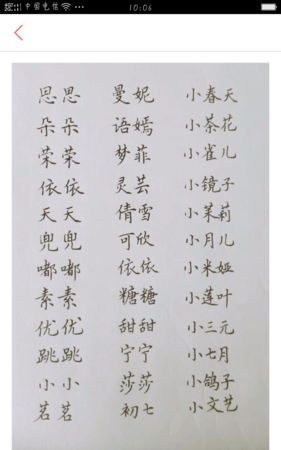 中国电信 10:06
思思 曼妮 小春天
朵朵 语嫣 小茶花
荣荣 梦菲 小雀儿
依依 灵芸 小镜子
天天 倩雪 小茉莉
兜兜 可欣 小月儿
嘟嘟 依依 小米娅
素素 糖糖 小莲叶
优优 甜甜 小三元
跳跳 宁宁 小七月
小小 莎莎 小鸽子
茗茗 初七 小文艺